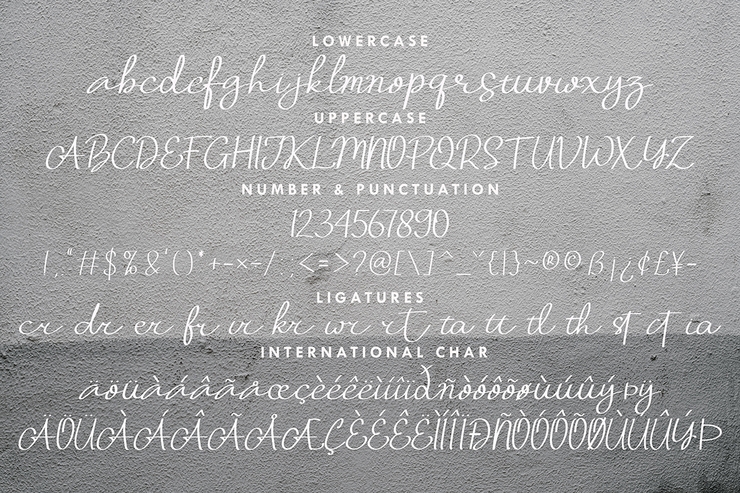 LOWERCASE
abcdefghijklmnopqrstuvwxyz
UPPERCASE
ABCDEFGHIJKLMNOPQRSTUVWXYZ
NUMBER & PUNCTUATION
1234567890
!,"#$%&'()*+-×÷/:;<=>?@[\]^_¨˘{|}~®©ß¡¿¢£¥-
LIGATURES
cr dr er fr ir kr wr rt ta tt tl th st ct ia
INTERNATIONAL CHAR
äöüàáâãåæçèéêëìíîïðñòóôõøùúûýþÿ
ÄÖÜÀÁÂÃÅÆÇÈÉÊËÌÍÎÏÐÑÒÓÔÕØÙÚÛÝÞ